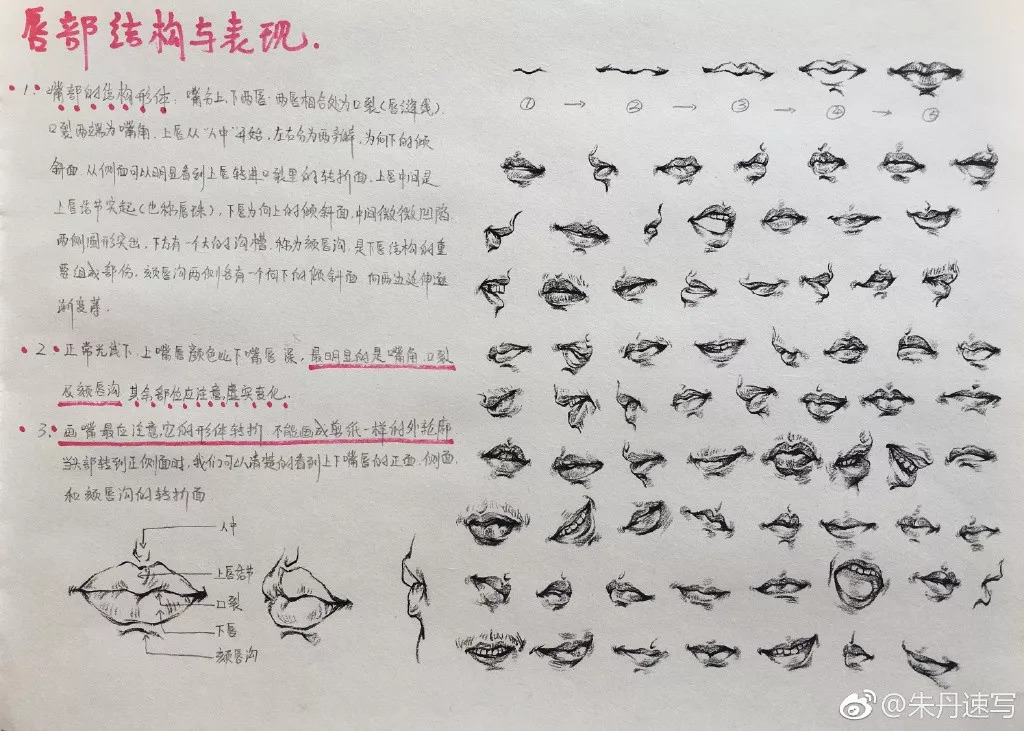 唇部结构与表现.
1. 嘴部的结构形体: 嘴分上、下两唇. 两唇相合处为口裂(唇缝线).
口裂两端为嘴角. 上唇从"人中"开始, 左右分为两多瓣, 为向下的倾
斜面. 从侧面可以明显看到上唇转进口裂里的转折面. 上唇中间是
上唇结节突起(也称唇珠), 下唇为向上的倾斜面, 中间微微凹陷
两侧圆形突出, 下方有一个大的沟槽. 称为颏唇沟, 是下唇结构的重
要组成部份, 颏唇沟两侧各有一个向下的倾斜面 向两边延伸逐
渐变薄.
2. 正常光线下, 上嘴唇颜色比下嘴唇 深, 最明显的是嘴角、口裂
及颏唇沟 其余部位应注意虚实变化.
3. 画嘴最应注意它的形体转折 不能画成剪纸一样的外轮廓
当头部转到正侧面时, 我们可以清楚的看到上下嘴唇的正面、侧面,
和颏唇沟的转折面
人中
上唇结节
口裂
下唇
颏唇沟
① → ② → ③ → ④ → ⑤
@朱丹速写